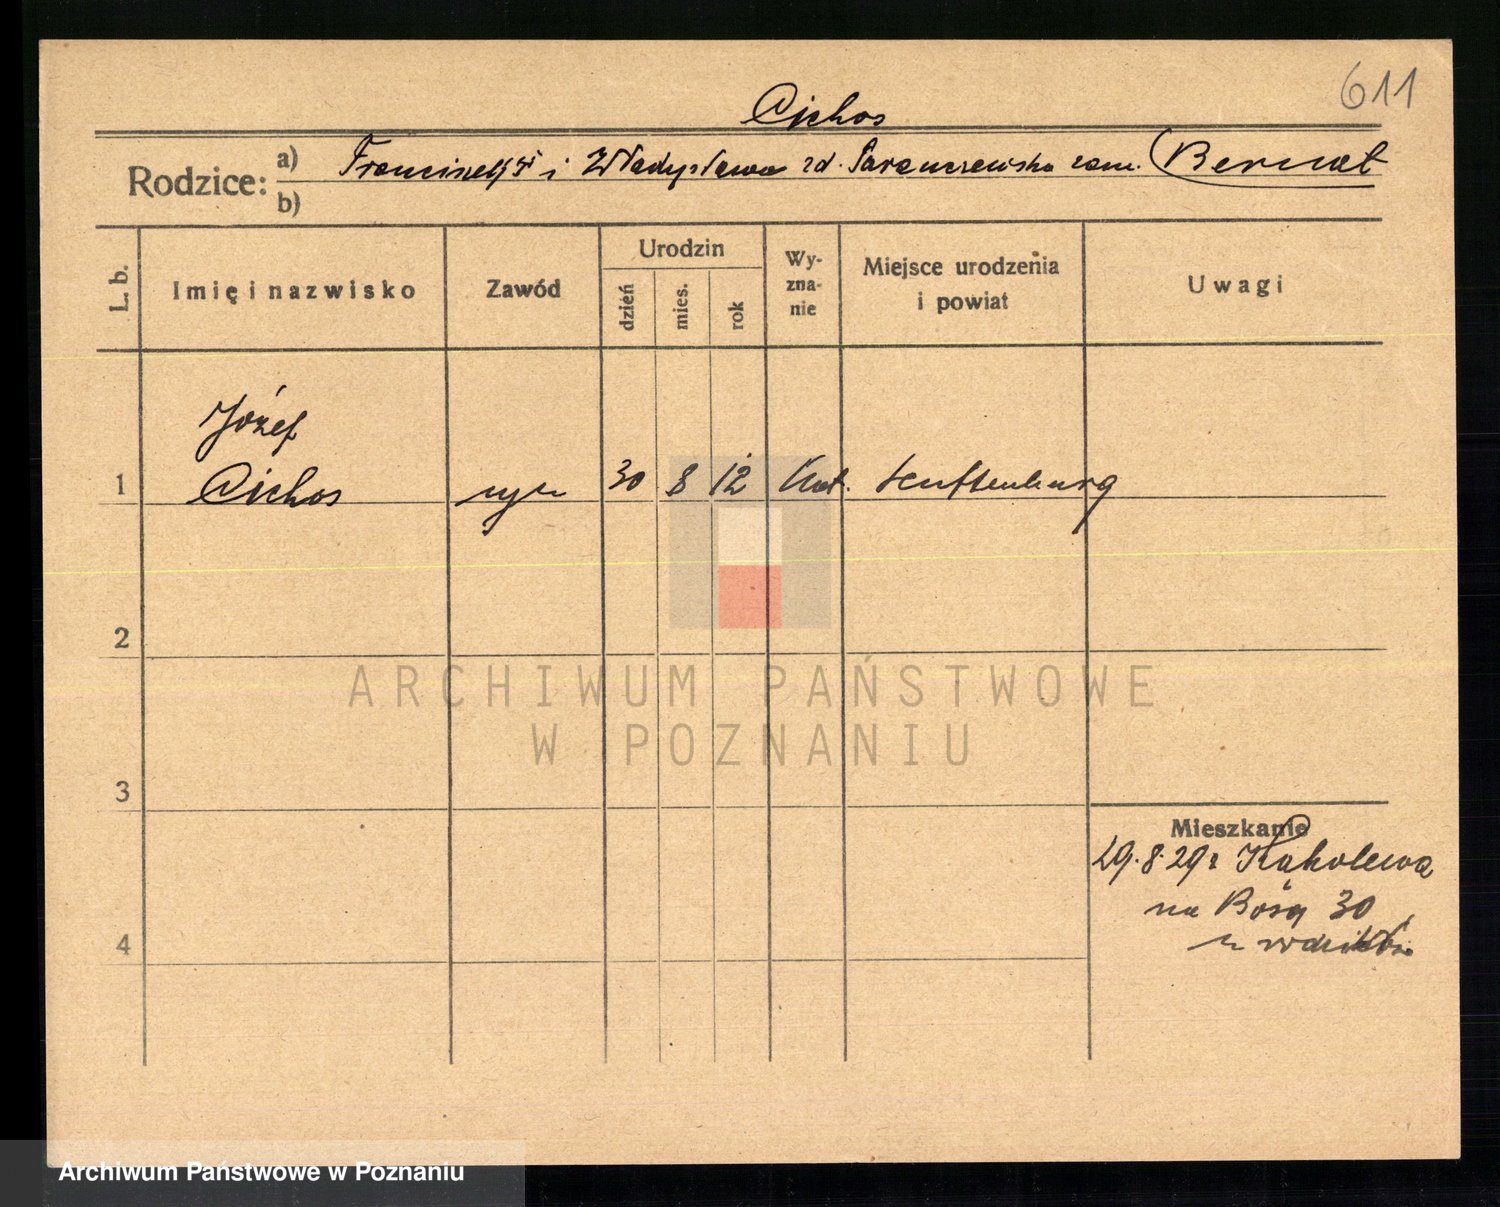 611
Cichos
Rodzice: a) Franciszek i Władysława zd. Taranczewska zam. Bernat
b)
L. b.
Imię i nazwisko
Zawód
Urodzin
dzień
mies.
rok
Wy-
zna-
nie
Miejsce urodzenia
i powiat
Uwagi
Józef
1 Cichos syn 30 8 12 kat. Senftenburg
2
3
4
Mieszkanie
29.8.29 r Kąkolewo
na 30
ARCHIWUM PAŃSTWOWE
W POZNANIU
Archiwum Państwowe w Poznaniu